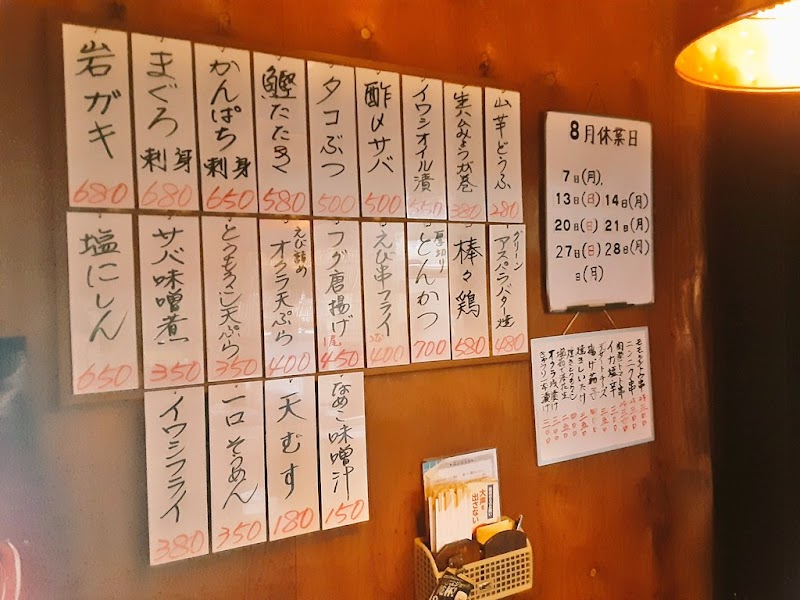 岩ガキ
680
まぐろ刺身
680
かんぱち刺身
650
鰹たたき
580
タコぶつ
500
酢〆サバ
500
イワシオイル漬
550
生ハムみょうが巻
380
山芋どうふ
280
塩にしん
650
サバ味噌煮
350
とうもろこし天ぷら
350
えび詰め
オクラ天ぷら
400
フグ唐揚げ
450
えび串フライ
400
厚切り
とんかつ
700
棒々鶏
580
グリーン
アスパラバター焼
480
イワシフライ
380
一口そうめん
350
天むす
180
なめこ味噌汁
150
8月休業日
7日(月).
13日(日) 14日(月)
20日(日) 21日(月)
27日(日) 28日(月)
日(月)
ニンニク串
イカ塩辛
大声を
出さない